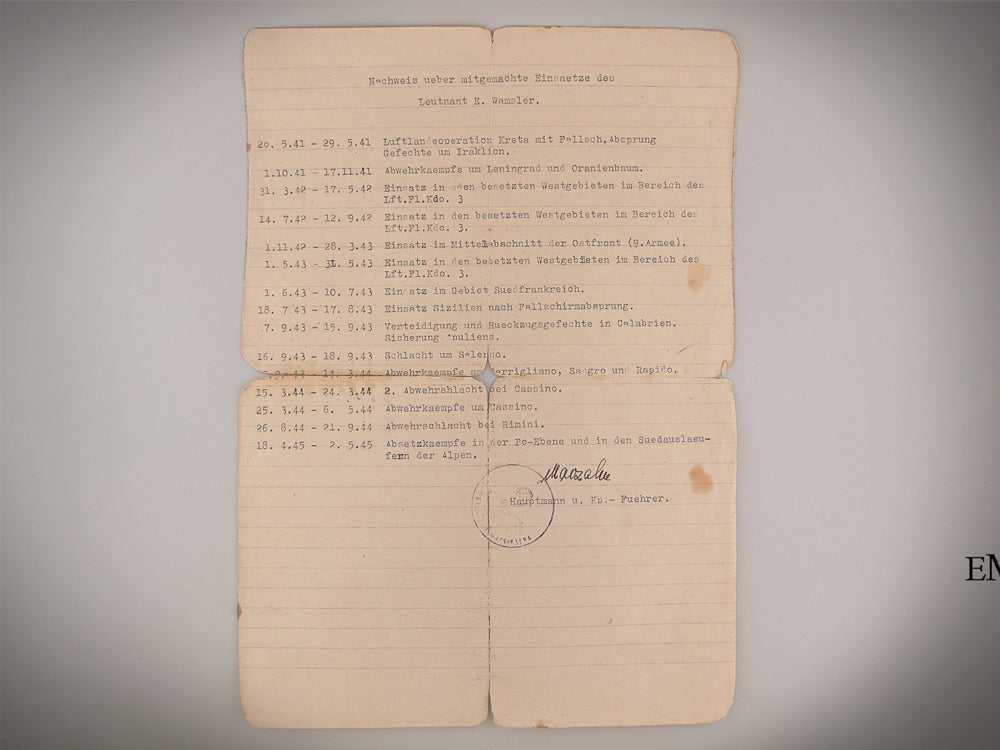 Nachweis ueber mitgemachte Einsaetze des
Leutnant E. Wamsler.
20. 5.41 - 29. 5.41 Luftlandeoperation Kreta mit Fallsch.Absprung
Gefechte um Iraklion.
1.10.41 - 17.11.41 Abwehrkaempfe um Leningrad und Oranienbaum.
31. 3.42 - 17. 5.42 Einsatz in den besetzten Westgebieten im Bereich des
Lft.Fl.Kdo. 3
14. 7.42 - 12. 9.42 Einsatz in den besetzten Westgebieten im Bereich des
Lft.Fl.Kdo. 3.
1.11.42 - 28. 3.43 Einsatz im Mittelabschnitt der Ostfront (9.Armee).
1. 5.43 - 31. 5.43 Einsatz in den besetzten Westgebieten im Bereich des
Lft.Fl.Kdo. 3.
1. 6.43 - 10. 7.43 Einsatz im Gebiet Suedfrankreich.
18. 7.43 - 17. 8.43 Einsatz Sizilien nach Fallschirmabsprung.
7. 9.43 - 15. 9.43 Verteidigung und Rueckzugsgefechte in Calabrien.
Sicherung Apuliens.
16. 9.43 - 18. 9.43 Schlacht um Salerno.
14. 3.44 Abwehrkaempfe am Sangro und Rapido.
15. 3.44 - 24. 3.44 2. Abwehrshlacht bei Cassino.
25. 3.44 - 6. 5.44 Abwehrkaempfe um Cassino.
26. 8.44 - 21. 9.44 Abwehrschlacht bei Rimini.
18. 4.45 - 2. 5.45 Absetzkaempfe in der Po-Ebene und in den Suedauslaeu-
fern der Alpen.
Hauptmann u. Kp.- Fuehrer.
EM